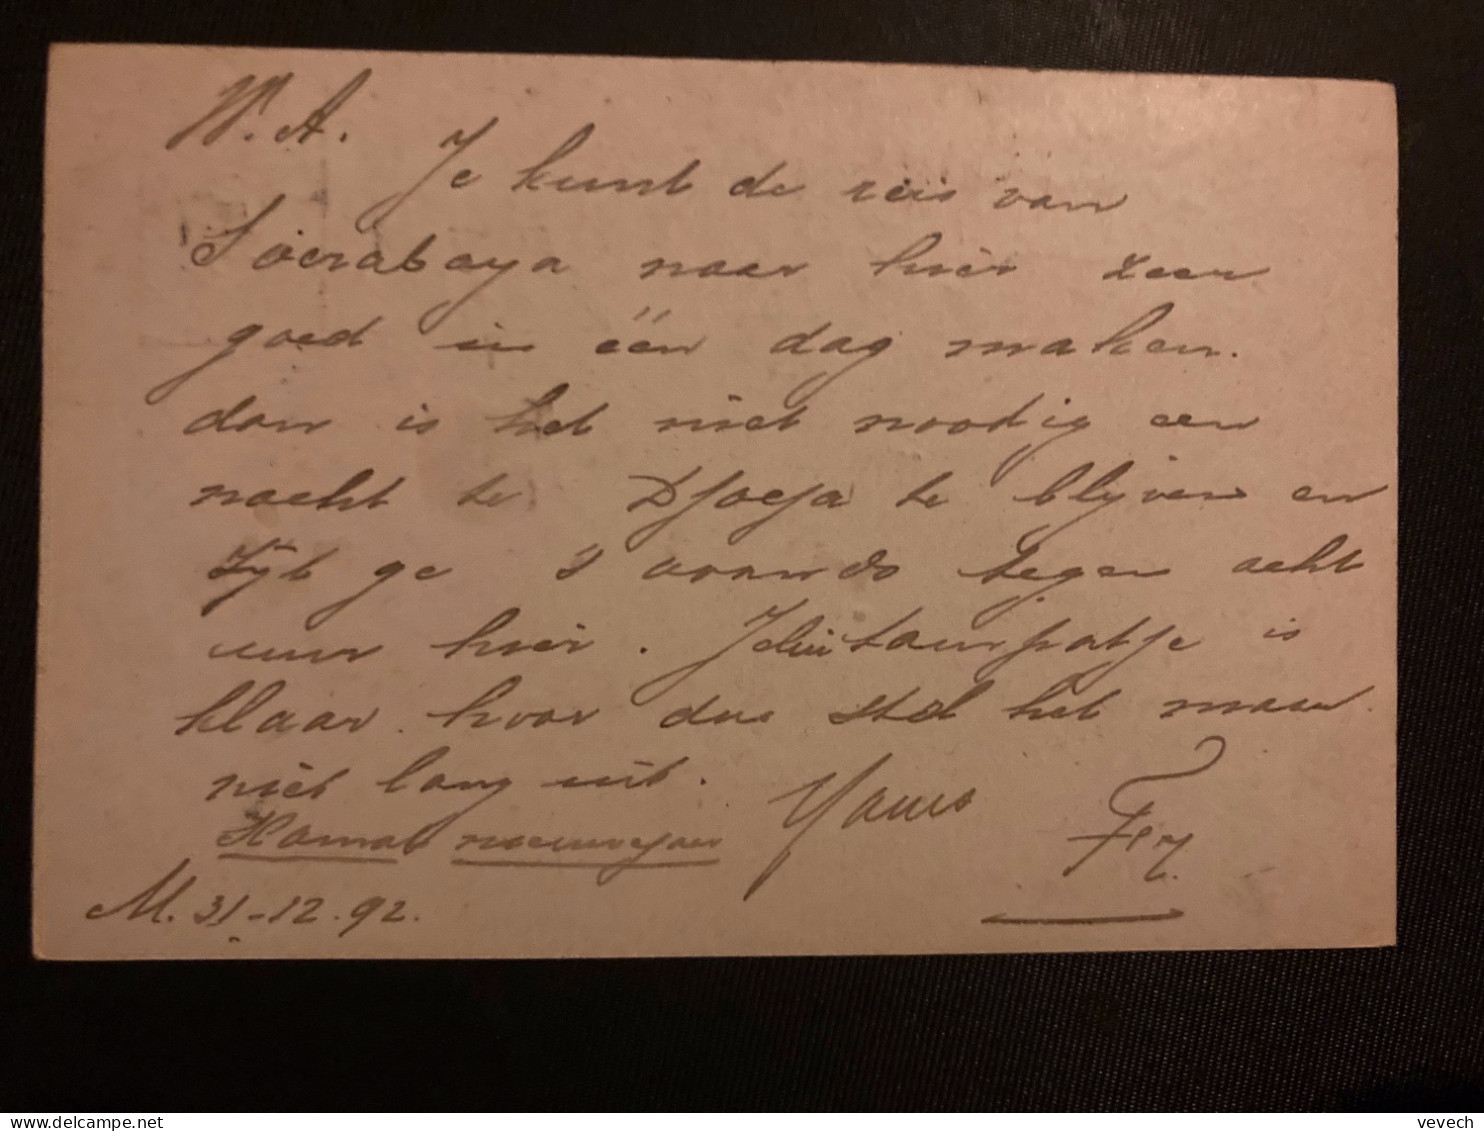 W. A.
Je kunt de reis van
Soerabaya naar hier zeer
goed in één dag maken.
dan is het niet noodig een
nacht te Djocja te blijven en
zijt ge 's avonds tegen acht
uur hier. is
klaar. hoor dus stel het maar
niet lang uit. Yours
nieuwejaar
M. 31-12.92.
vevech